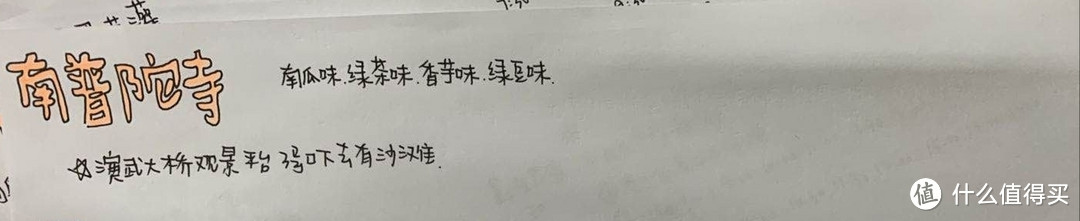 燕
南普陀寺
南瓜味.绿茶味.香芋味.绿豆味.
☆演武大桥观景平台 3号口下去有沙滩.
值 什么值得买